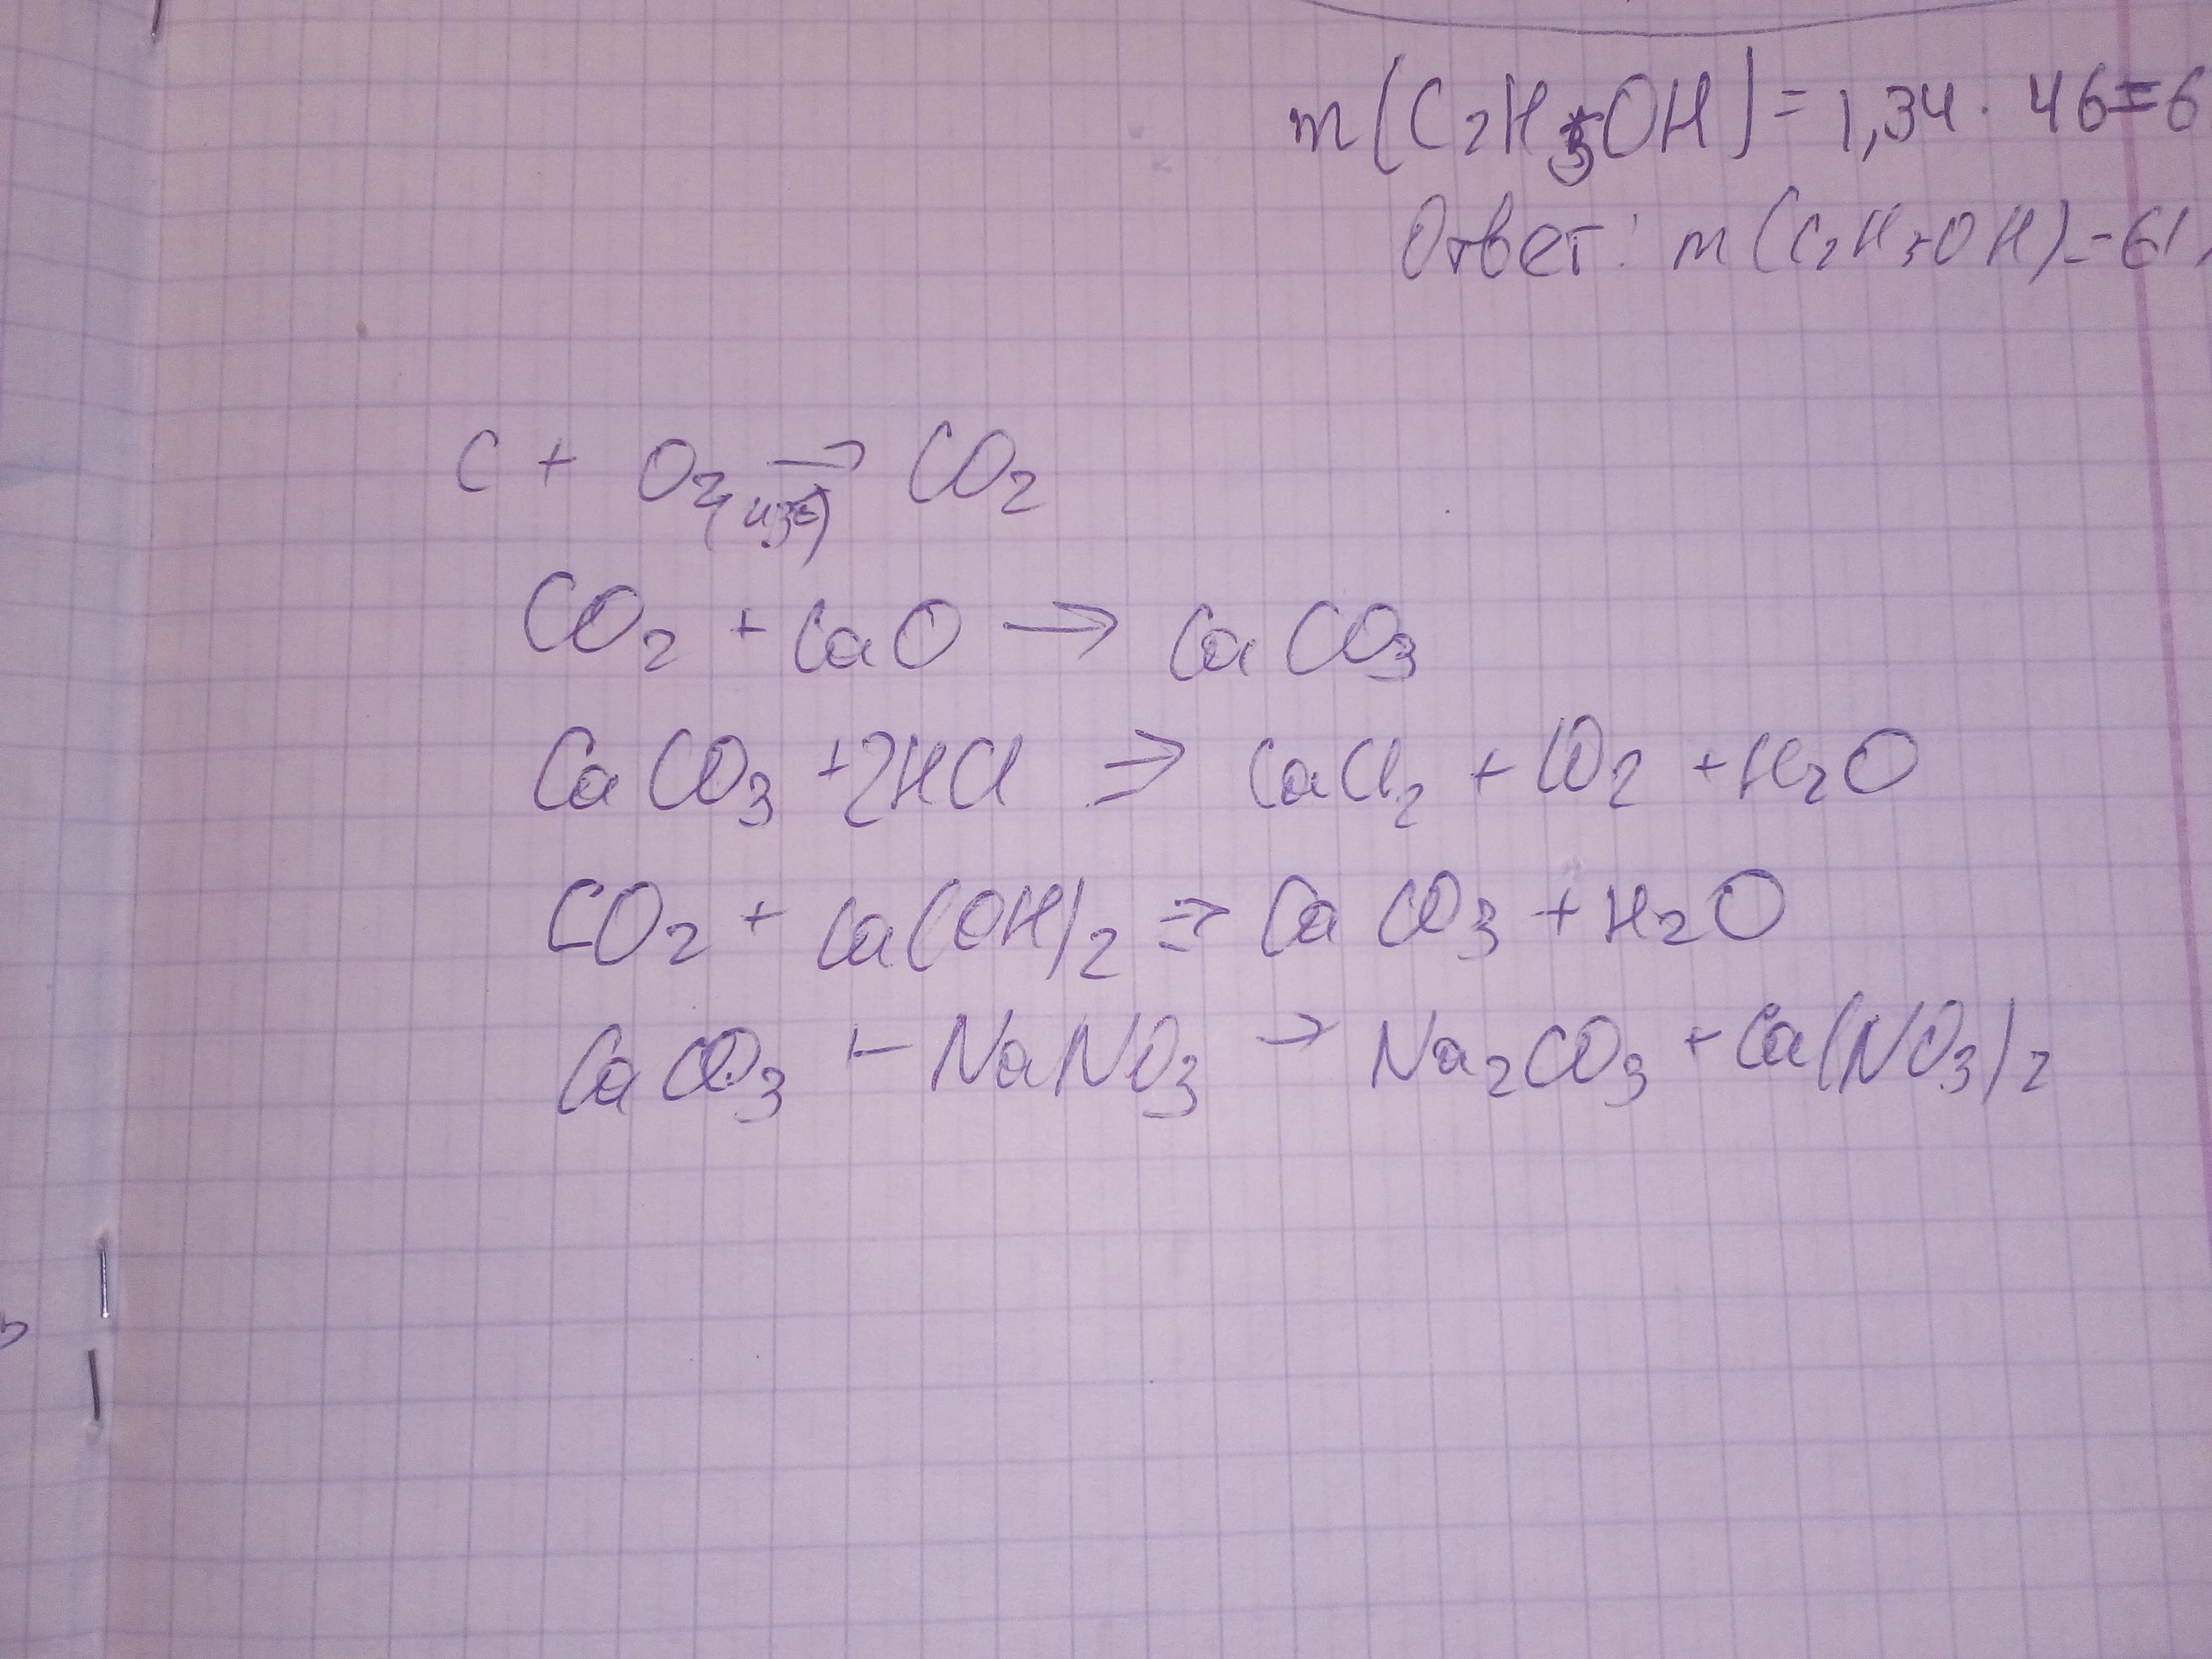 m(C₂H₅OH)=1,34·46=6
Ответ: m(C₂H₅OH)=61,
C + O₂(изб) → CO₂
CO₂ + CaO → CaCO₃
CaCO₃ +2HCl ⇒ CaCl₂ + CO₂ + H₂O
CO₂ + Ca(OH)₂ ⇒ CaCO₃ + H₂O
CaCO₃ + NaNO₃ → Na₂CO₃ + Ca(NO₃)₂